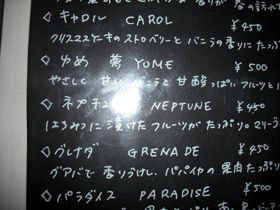 ◇ キャロル CAROL ¥450
クリスマスケーキのストロベリーとバニラの香りにたっぷ
◇ ゆめ 夢 YUME ¥500
やさしく 甘い バニラと 甘酸っぱい フルーツと
◇ ネプチュ NEPTUNE ¥450
はちみつに漬けた フルーツが たっぷり。マリーゴ
◇ グレナダ GRENADE ¥450
グアバで 香りづけし、パパイヤの 果肉たっぷり
◇ パラダイス PARADISE ¥500